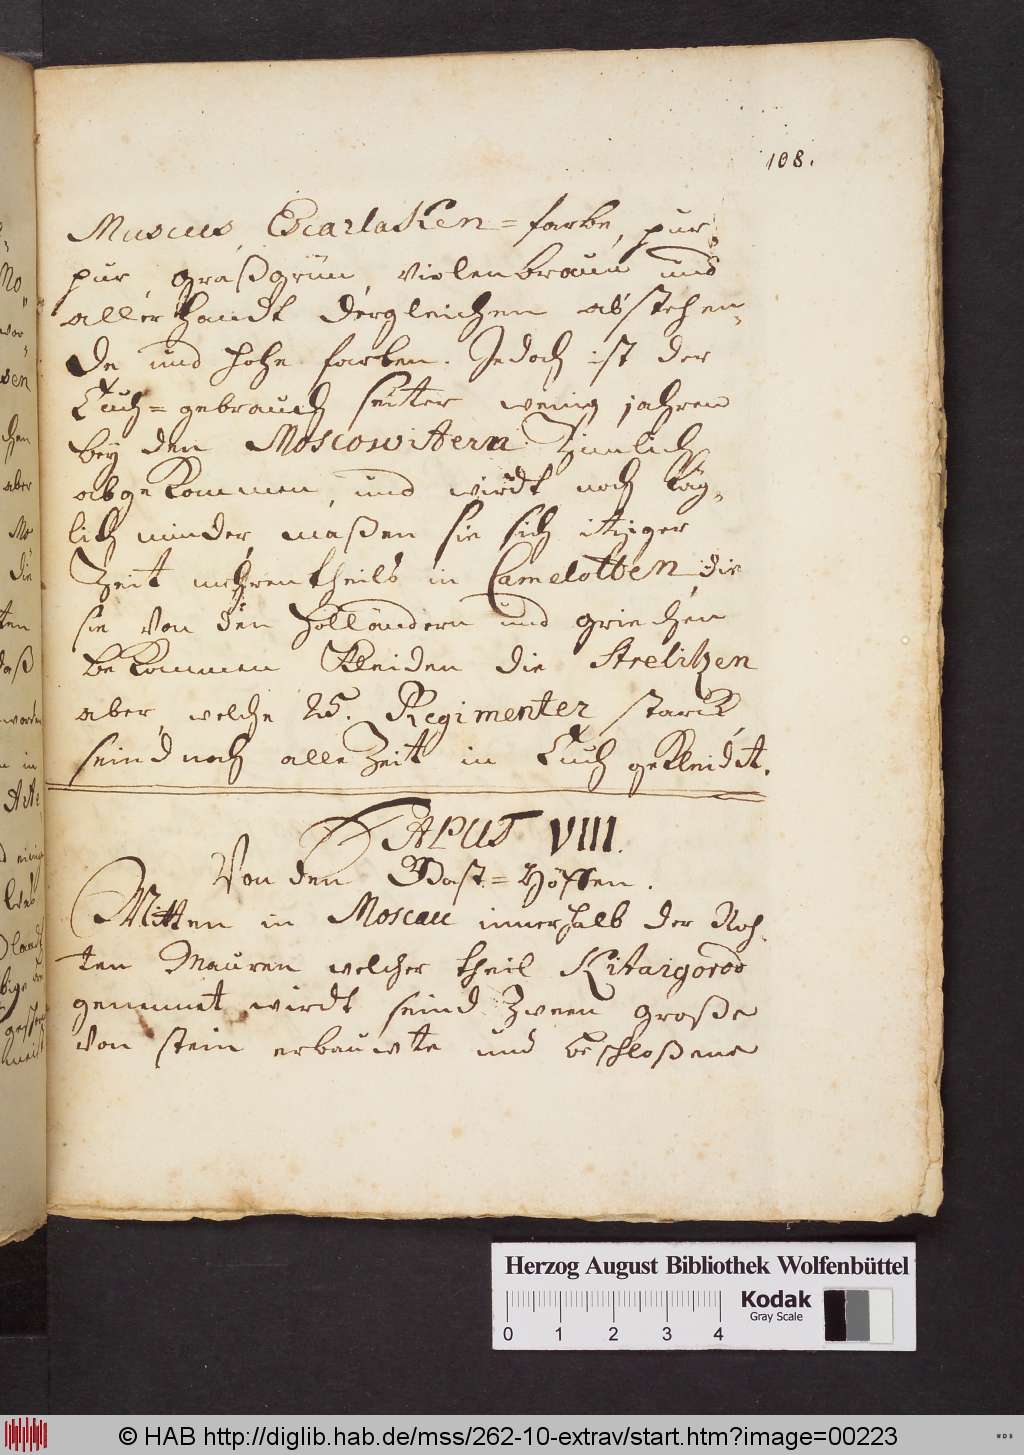 108.
Muscus, Escarlaken = farbe, pur,
pur, graßgrün, violenbraun und
allerhandt dergleichen abstehen,
de und hohe farben. Jedoch ist der
Tuch = gebrauch seiter wenig jahren
bey den Moscowittern Zimlich
abgekommen, und wirdt noch täg,
lich minder, maßen sie sich itziger
Zeit mehrentheils in Camelotten, die
sie von den Holländern und griechen
bekommen Kleiden die Strelitzen
aber, welche 25. Regimenter starck
seind noch alle Zeit in Tuch gekleidet.
CAPUT VIII.
Von den Gast = Höffen.
Mitten in Moscau innerhalb der Roh,
ten Mauren welcher theil Kitaigorod
gennnet wirdt seind Zween große
von stein erbauwte und beschloßene
Herzog August Bibliothek Wolfenbüttel
Kodak
Gray Scale
0 1 2 3 4
© HAB http://diglib.hab.de/mss/262-10-extrav/start.htm?image=00223